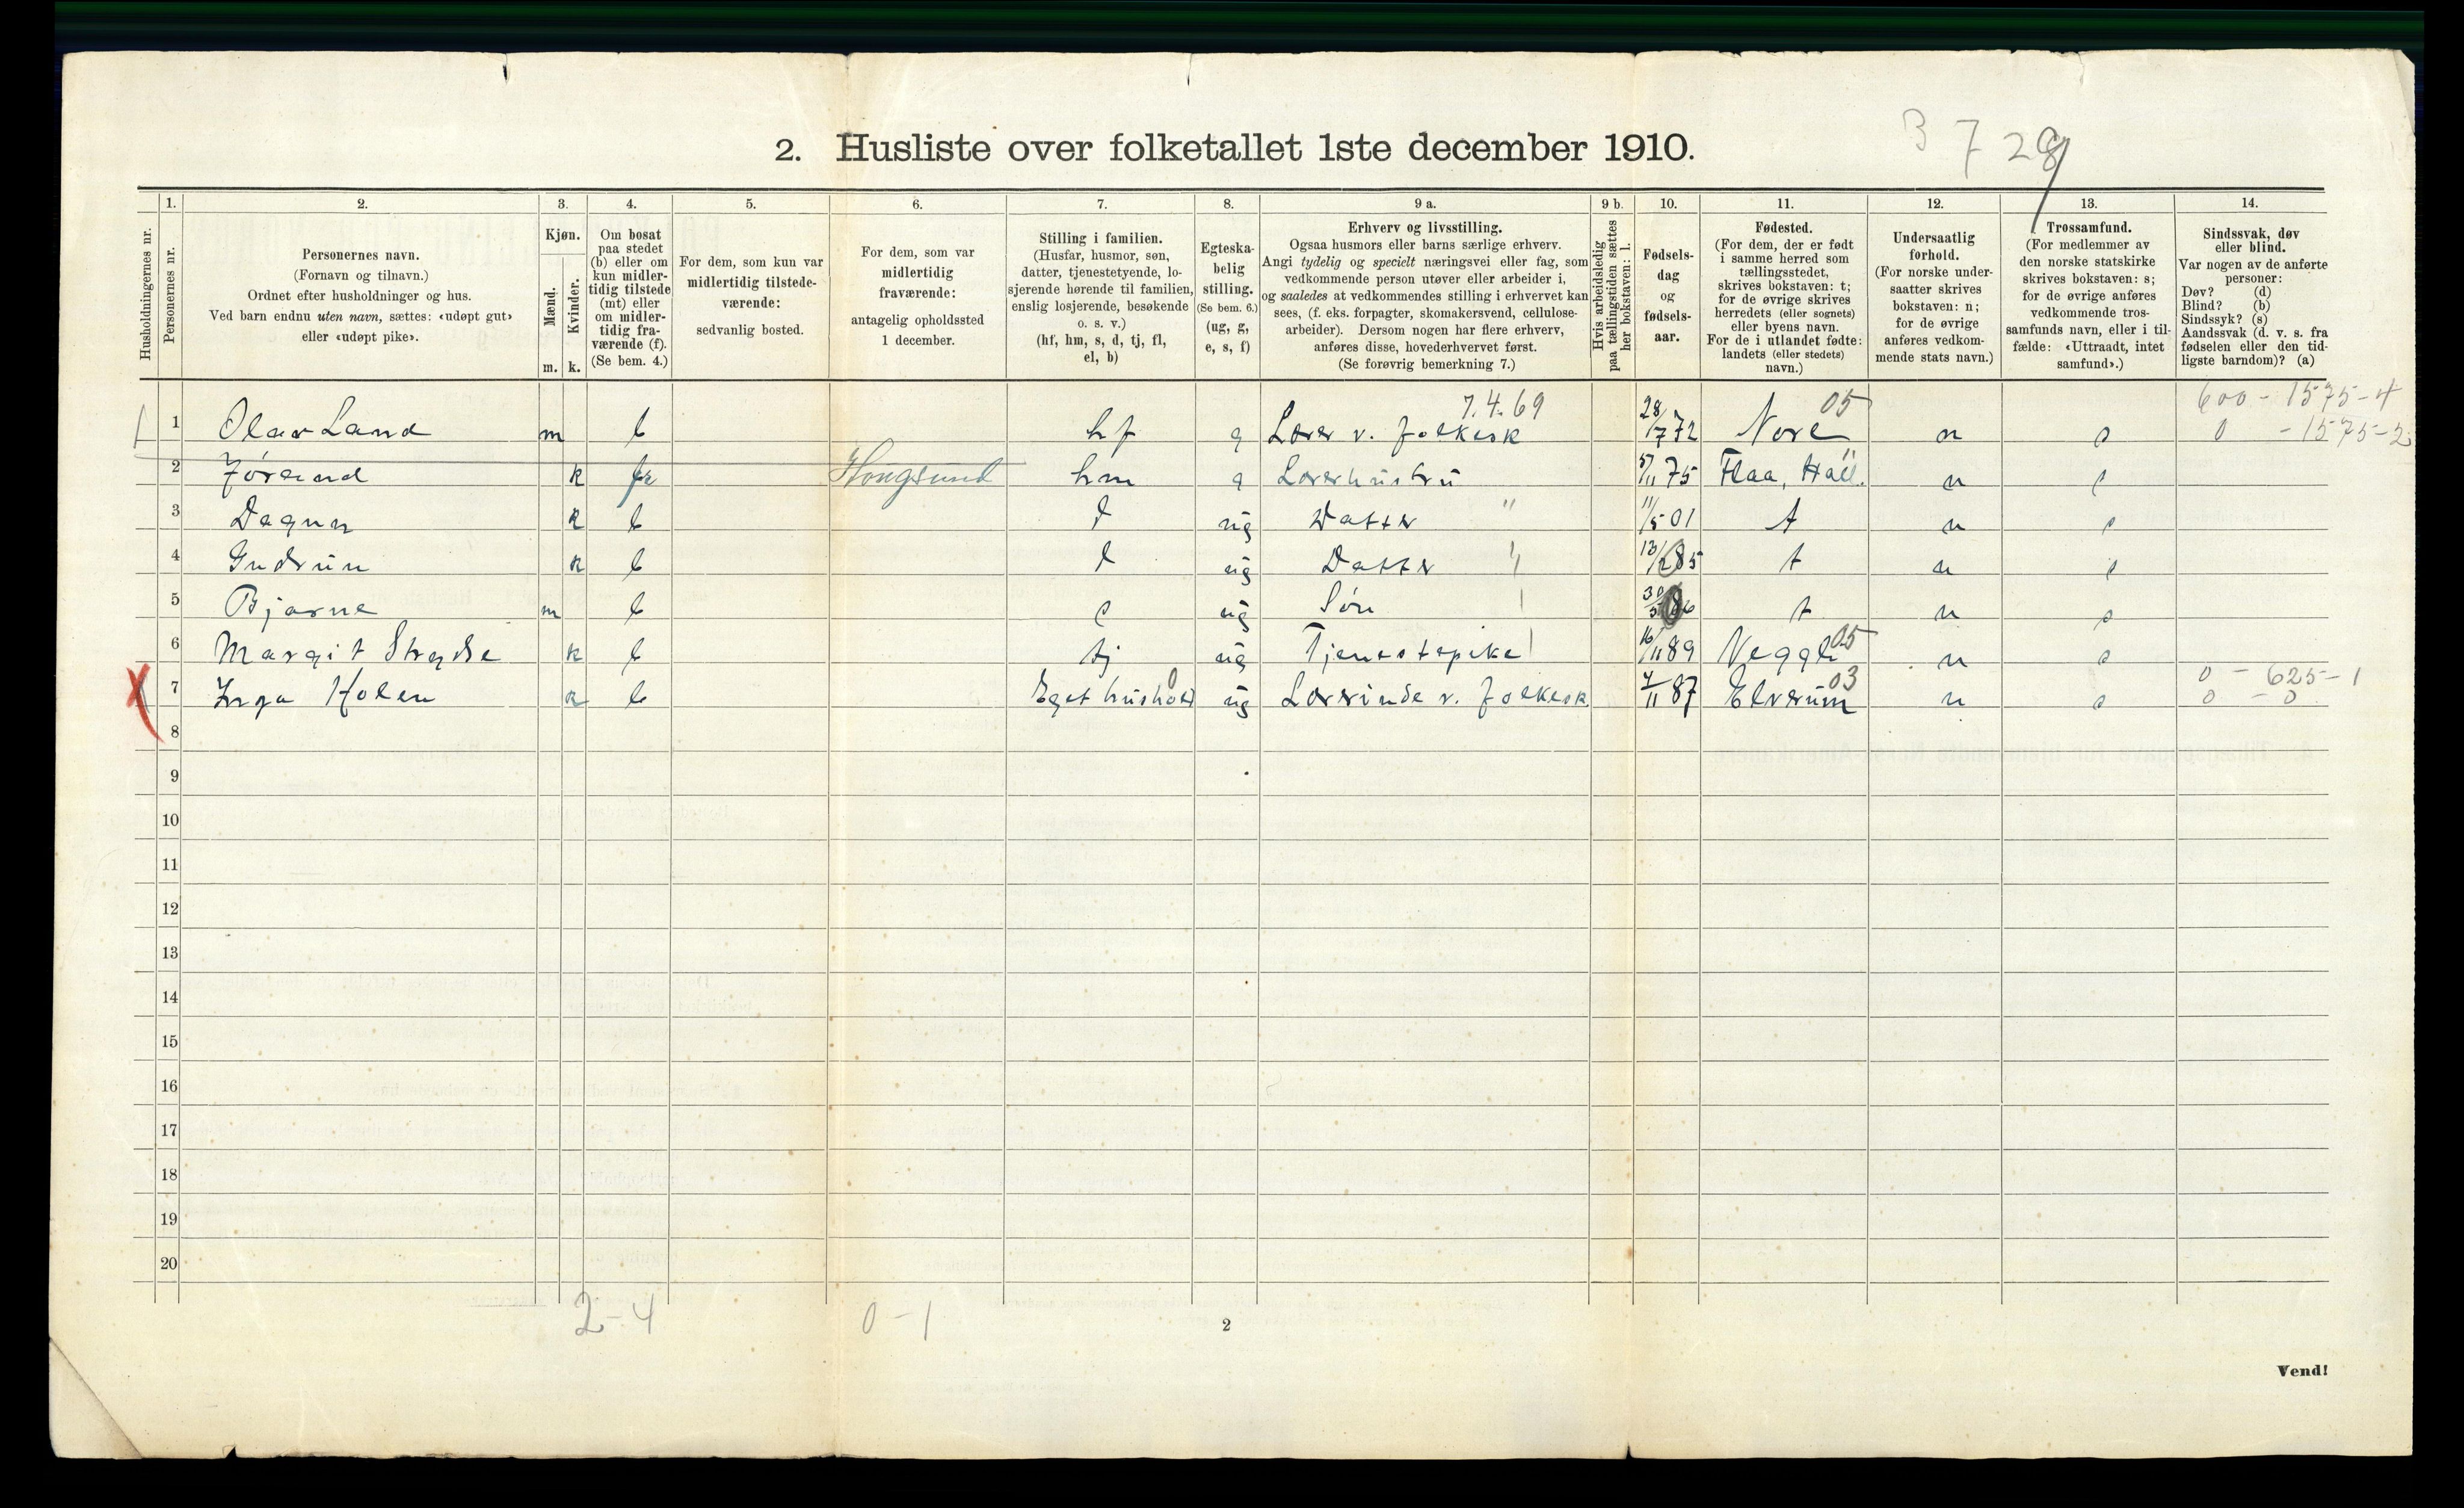 2. Husliste over folketallet 1ste december 1910.
3 7 28
Husholdningernes nr.
1. Personernes nr.
2. Personernes navn. (Fornavn og tilnavn.) Ordnet efter husholdninger og hus. Ved barn endnu uten navn, sættes: «udøpt gut» eller «udøpt pike».
3. Kjøn. Mænd. m. Kvinder. k.
4. Om bosat paa stedet (b) eller om kun midlertidig tilstede (mt) eller om midlertidig fraværende (f). (Se bem. 4.)
5. For dem, som kun var midlertidig tilstedeværende: sedvanlig bosted.
6. For dem, som var midlertidig fraværende: antagelig opholdssted 1 december.
7. Stilling i familien. (Husfar, husmor, søn, datter, tjenestetyende, losjerende hørende til familien, enslig losjerende, besøkende o. s. v.) (hf, hm, s, d, tj, fl, el, b)
8. Egteskabelig stilling. (Se bem. 6.) (ug, g, e, s, f)
9 a. Erhverv og livsstilling. Ogsaa husmors eller barns særlige erhverv. Angi tydelig og specielt næringsvei eller fag, som vedkommende person utøver eller arbeider i, og saaledes at vedkommendes stilling i erhvervet kan sees, (f. eks. forpagter, skomakersvend, cellulosearbeider). Dersom nogen har flere erhverv, anføres disse, hovederhvervet først. (Se forøvrig bemerkning 7.)
9 b. Hvis arbeidsledig paa tællingstiden sættes her bokstaven: l.
10. Fødselsdag og fødselsaar.
11. Fødested. (For dem, der er født i samme herred som tællingsstedet, skrives bokstaven: t; for de øvrige skrives herredets (eller sognets) eller byens navn. For de i utlandet fødte: landets (eller stedets) navn.)
12. Undersaatlig forhold. (For norske undersaatter skrives bokstaven: n; for de øvrige anføres vedkommende stats navn.)
13. Trossamfund. (For medlemmer av den norske statskirke skrives bokstaven: s; for de øvrige anføres vedkommende trossamfunds navn, eller i tilfælde: «Uttraadt, intet samfund».)
14. Sindssvak, døv eller blind. Var nogen av de anførte personer: Døv? (d) Blind? (b) Sindssyk? (s) Aandssvak (d. v. s. fra fødselen eller den tidligste barndom)? (a)
7.4.69 05 600 - 1575-4
1 Olav Land m b hf g Lærer v. folkesk 28/7 72 Nore n s 0 - 1575-2
2 Jørand k Hougsund hm g Lærerhustru 5/11 75 Flaa, Hall. n s
3 Dagny k b d ug Datter " 11/5 01 t n s
4 Gudrun k b d ug Datter " t n s
5 Bjarne m b s ug Søn t n s
6 Margit k b tj ug Tjenestepike 16/11 89 Veggli 05 n s
7 Inga Holen k b Eget hushold 0 ug Lærerinde v. folkesk. 4/11 87 Elverum 03 n s 0 - 625-1
0 - 0
8
9
10
11
12
13
14
15
16
17
18
19
20
2-4 0-1
2
Vend!